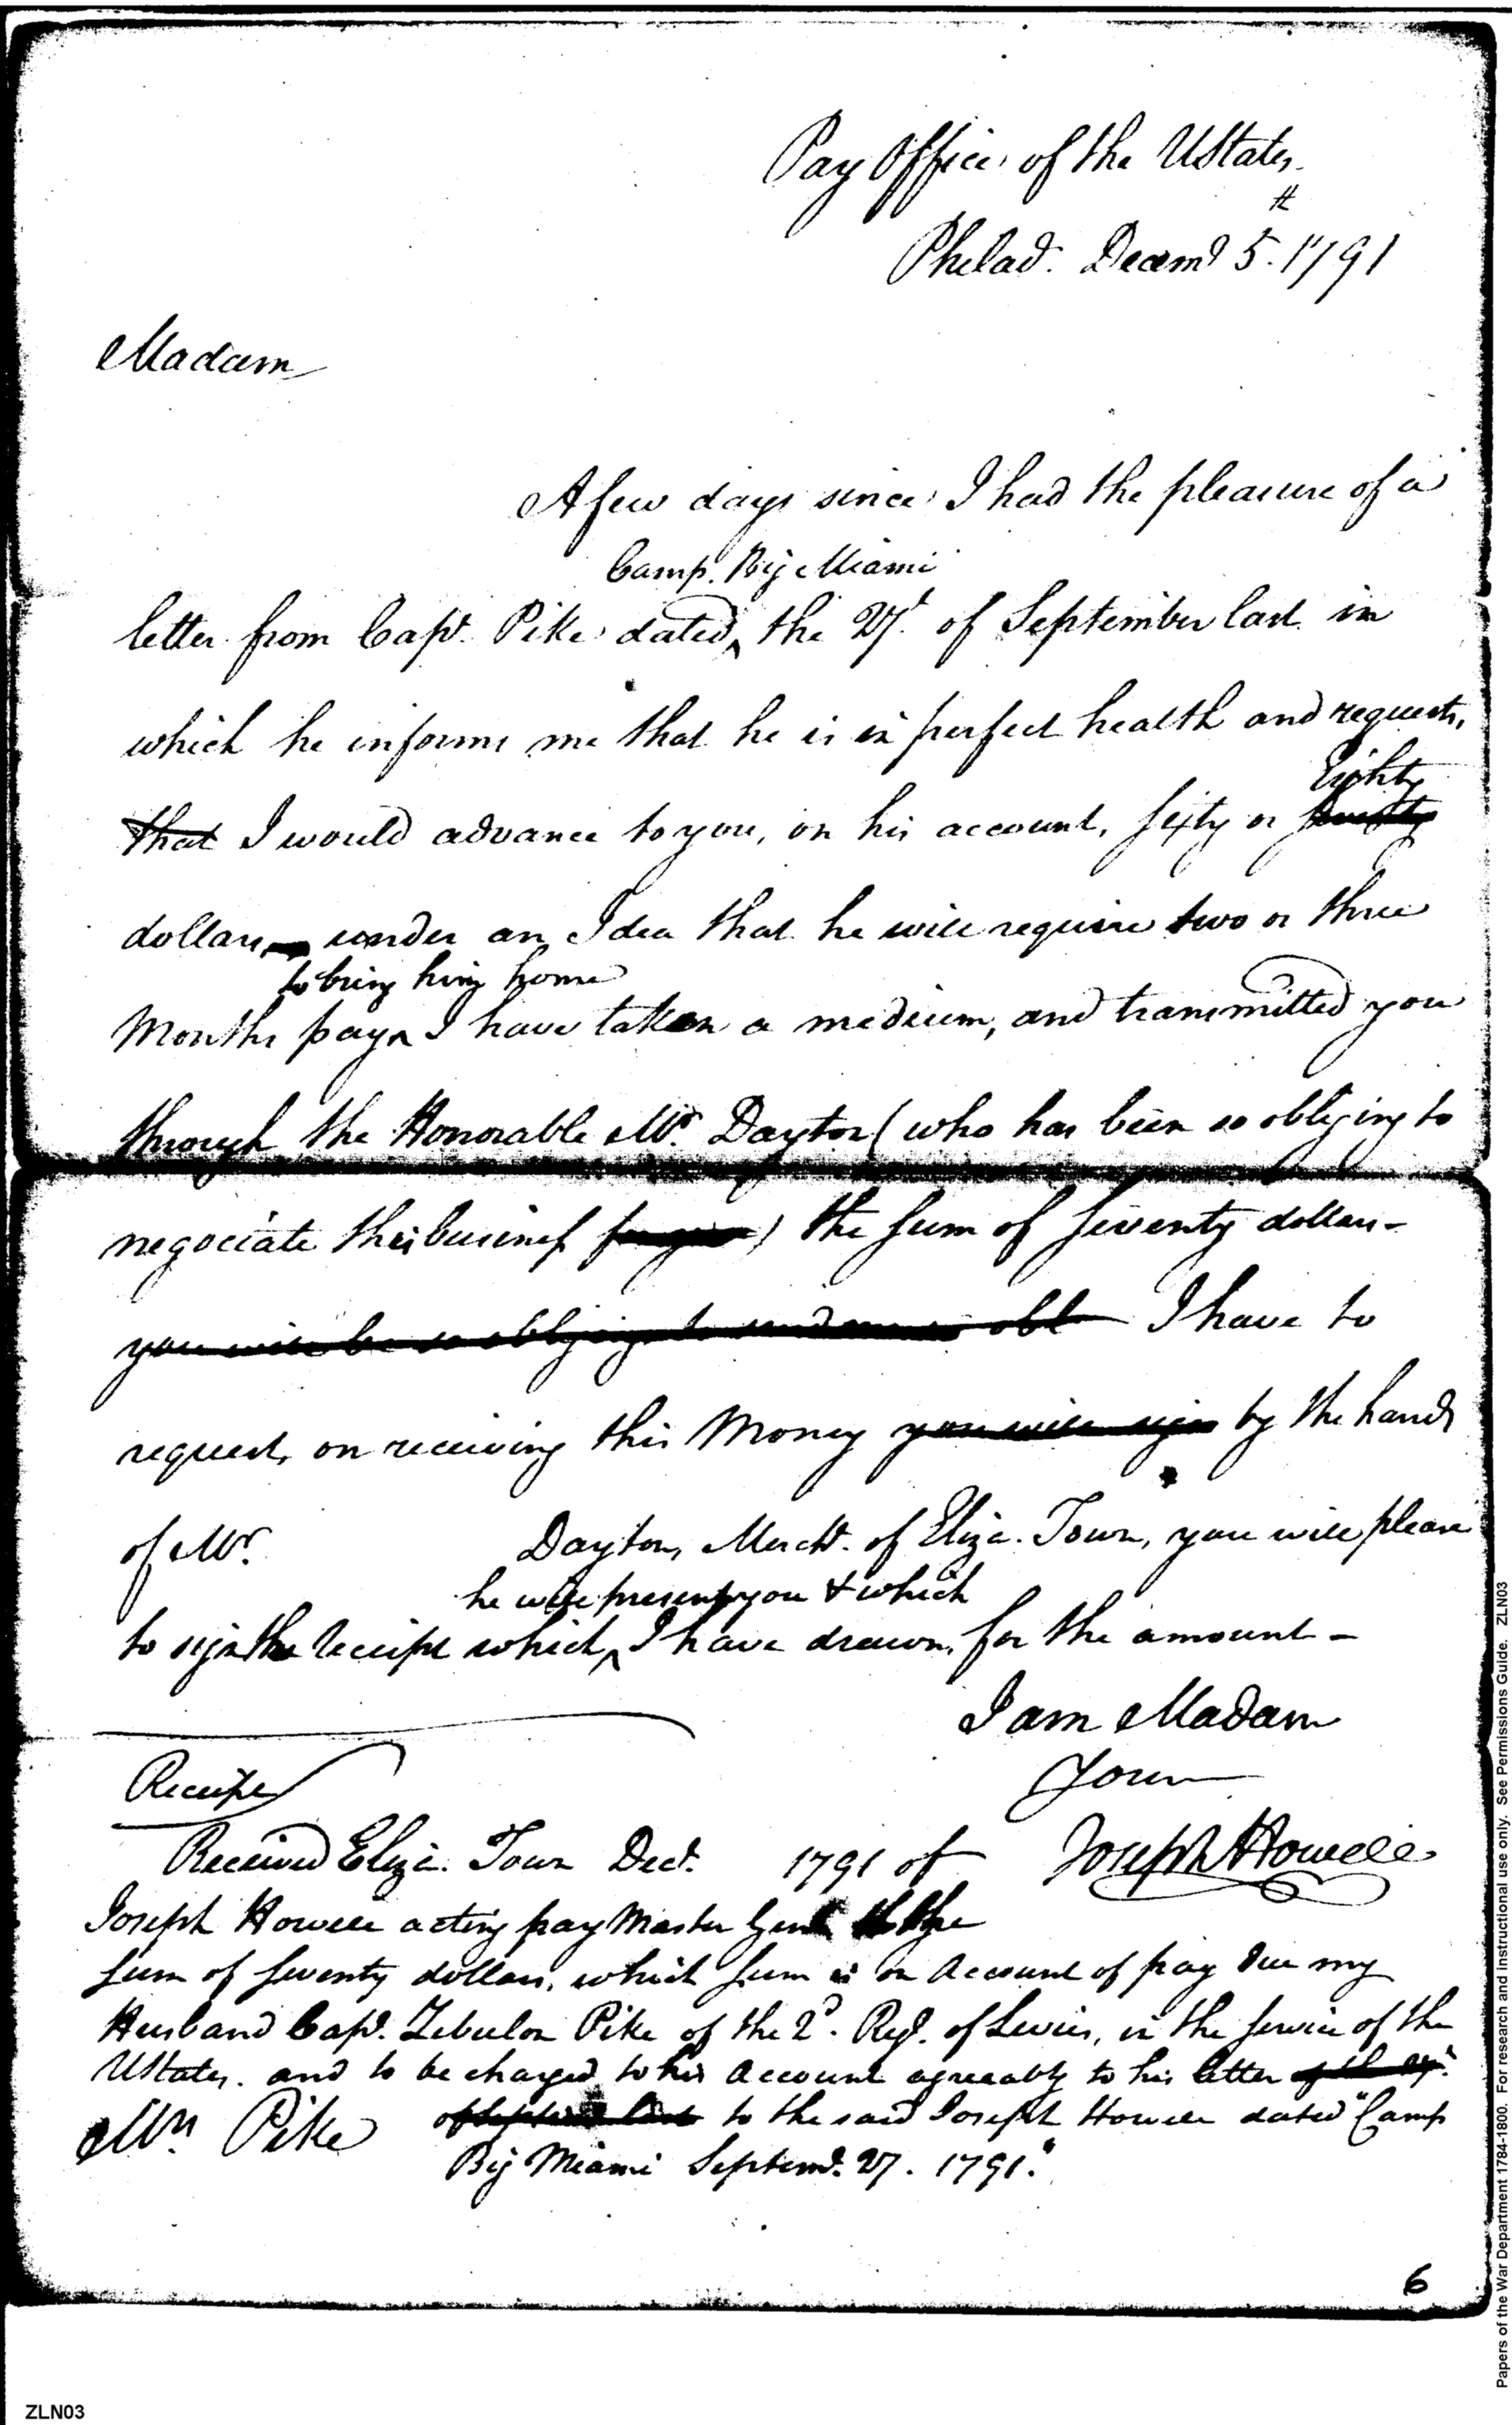 Pay Office of the UStates
Philad. Decemr 5th. 1791
Madam
A few days since I had the pleasure of a
Camp. Big Miami
letter from Capt. Pike dated ‸ the 27t. of September last in
which he informs me that he is in perfect health and requests,
Eighty
that I would advance to you, on his account, sixty or seventy
dollars, under an Idea that he will require two or three
to bring him home
Months pay ‸ I have taken a medium, and transmitted you
through the Honorable Mr. Dayton (who has been so obliging to
negociate this business for you) the sum of seventy dollars -
you will be so obliging to send me obl I have to
request, on receiving this Money you will sign by the hands
of Mr. Dayton, Mercht. of Eliza. Town, you will please
he will present you & which
to sign the receipt which ‸ I have drawn, for the amount -
I am Madam
Your
Joseph Howell
Receipt
Received Eliza. Town Decr. 1791 of
Joseph Howell acting pay Master Genl the
sum of seventy dollars, which sum is on Account of pay due my
Husband Capt. Zebulon Pike of the 2d. Regt. of Levies, in the service of the
UStates. and to be charged to his Account agreeably to his letter of the 27t.
of Septemr last to the said Joseph Howell dated "Camp
Big Miami Septemr. 27. 1791."
Mrs Pike
6
ZLN03
Papers of the War Department 1784-1800. For research and instructional use only. See Permissions Guide. ZLN03